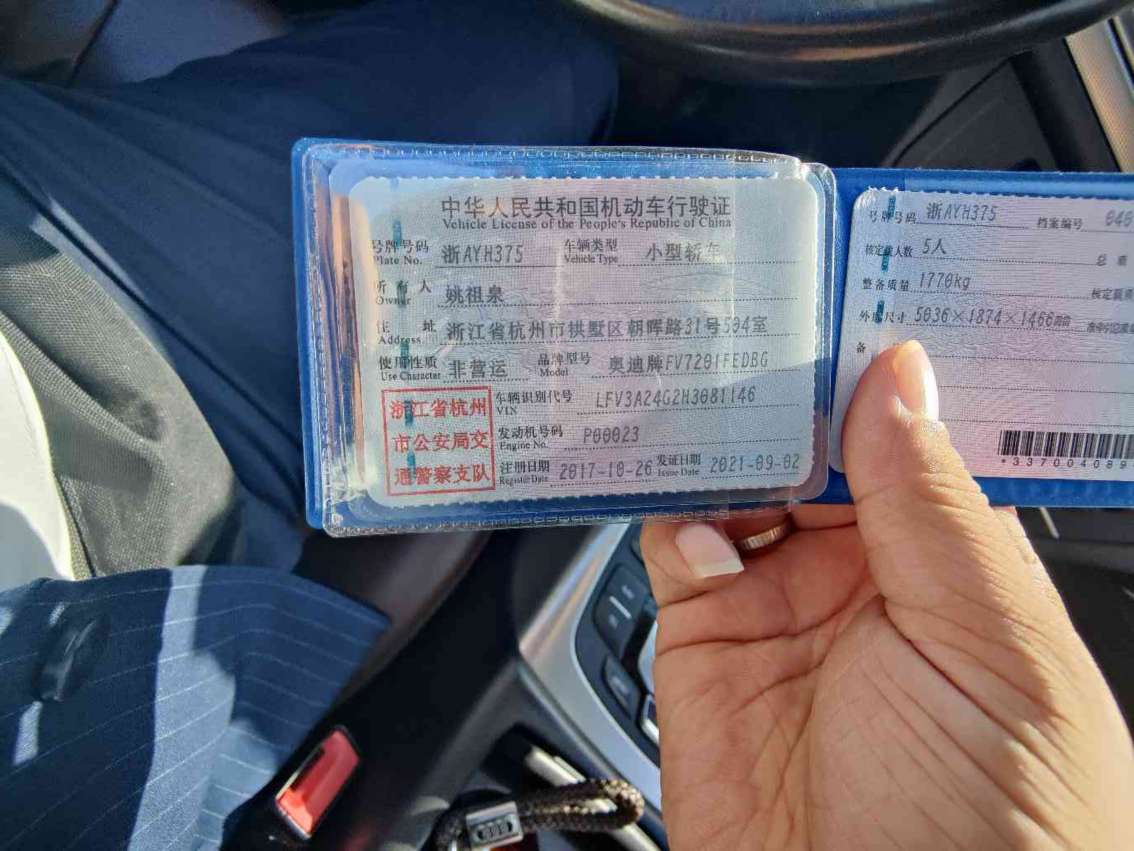 中华人民共和国机动车行驶证
Vehicle License of the People's Republic of China
号牌号码 浙AYH375 车辆类型 小型轿车
Plate No. Vehicle Type
所有人 姚祖泉
Owner
住址 浙江省杭州市拱墅区朝晖路31号504室
Address
使用性质 非营运 品牌型号 奥迪牌FV7201FEDBG
Use Character Model
浙江省杭州
市公安局交
通警察支队
车辆识别代号 LFV3A24G2H3081146
VIN
发动机号码 P00023
Engine No.
注册日期 2017-10-26 发证日期 2021-09-02
Register Date Issue Date
号牌号码 浙AYH375 档案编号
核定载人数 5人 总质
整备质量 1770kg 核定载质
外廓尺寸 5036×1874×1466
备
*337004089